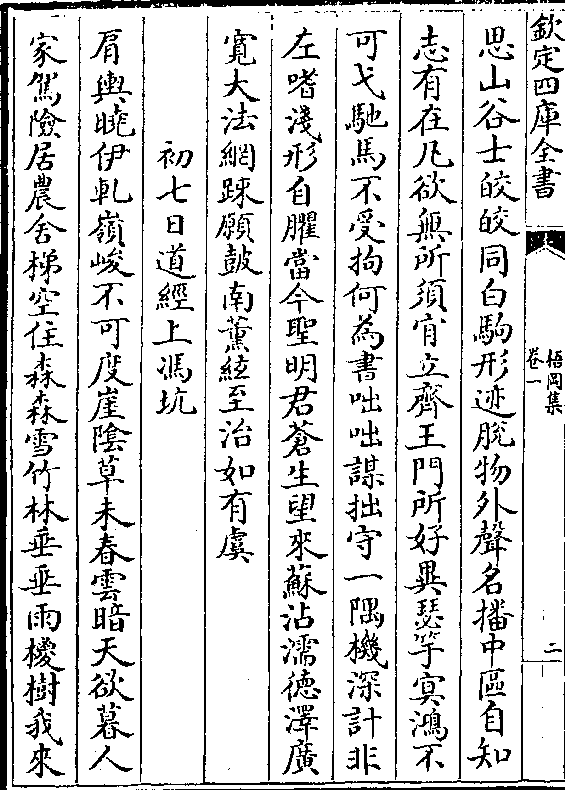 欽定四庫全書
梧岡集
卷一
二
思山谷士皎皎同白駒形迹脫物外聲名播中區自知
志有在凡欲無所須肎立齊王門所好異瑟竽冥鴻不
可弋馳馬不受拘何為書咄咄謀拙守一隅機深計非
左嗜淺形自臞當今聖明君蒼生望來蘇沾濡德澤廣
寛大法網踈願鼓南薫絃至治如有虞
初七日道經上馮坑
肩輿曉伊軋嶺峻不可度崖陰草未春雲暗天欲暮人
家駕險居農舍梯空住森森雪竹林垂垂雨椶樹我來